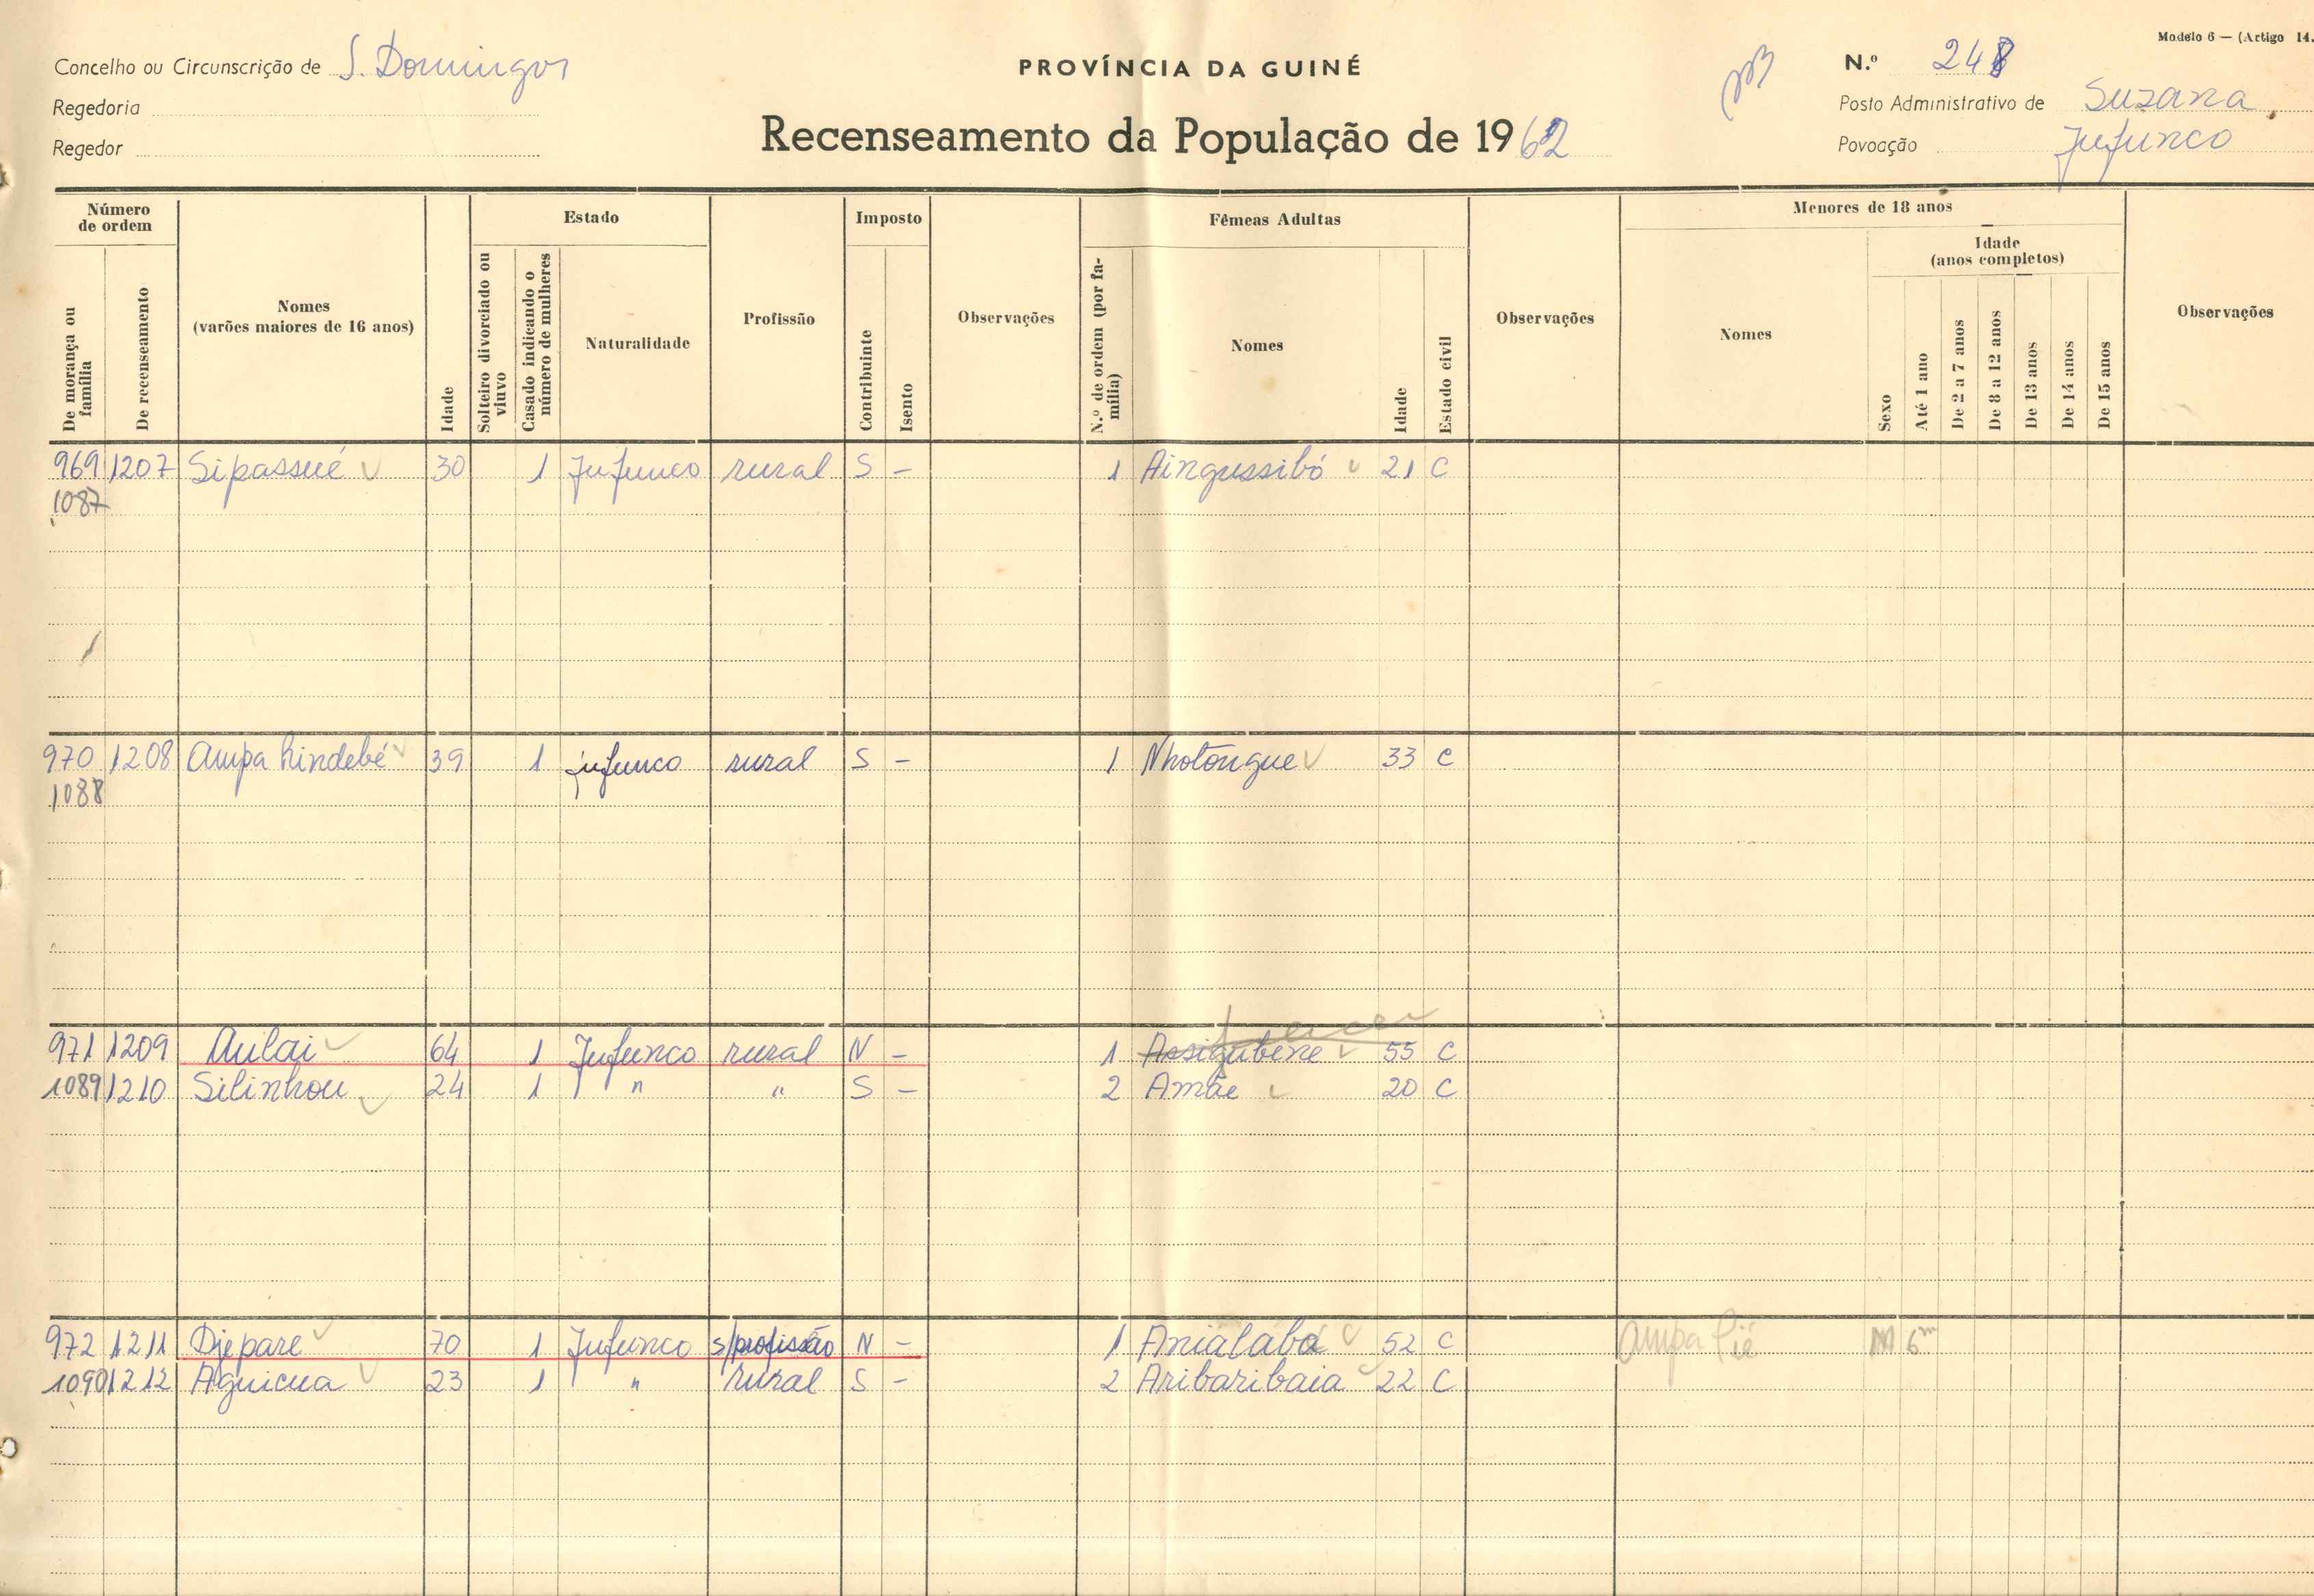 Modelo 6 — (Artigo 14.
Concelho ou Circunscrição de S. Domingos
PROVÍNCIA DA GUINÉ
N.º 248
Regedoria
Posto Administrativo de Suzana
Regedor
Recenseamento da População de 1962
Povoação Jufunco
Número de ordem
Estado
Imposto
Fêmeas Adultas
Menores de 18 anos
Idade (anos completos)
De morança ou família
De recenseamento
Nomes (varões maiores de 16 anos)
Idade
Solteiro divorciado ou viuvo
Casado indicando o número de mulheres
Naturalidade
Profissão
Contribuinte
Isento
Observações
N.º de ordem (por família)
Nomes
Idade
Estado civil
Observações
Nomes
Sexo
Até 1 ano
De 2 a 7 anos
De 8 a 12 anos
De 13 anos
De 14 anos
De 15 anos
Observações
969 1207 Sipassué 30 1 Jufunco rural S - 1 Aingussibó 21 C
1087
970 1208 Ampa hindebé 39 1 jufunco rural S - 1 Nhotongue 33 C
1088
971 1209 Aulai 64 1 Jufunco rural N - 1 Assigubene 55 C
1089 1210 Silinhou 24 1 " " S - 2 Amãe 20 C
972 1211 Djepare 70 1 Jufunco s/profissão N - 1 Anialabá 52 C Ampa Pié M 6m
1090 1212 Aguicua 23 1 " rural S - 2 Aribaribaia 22 C